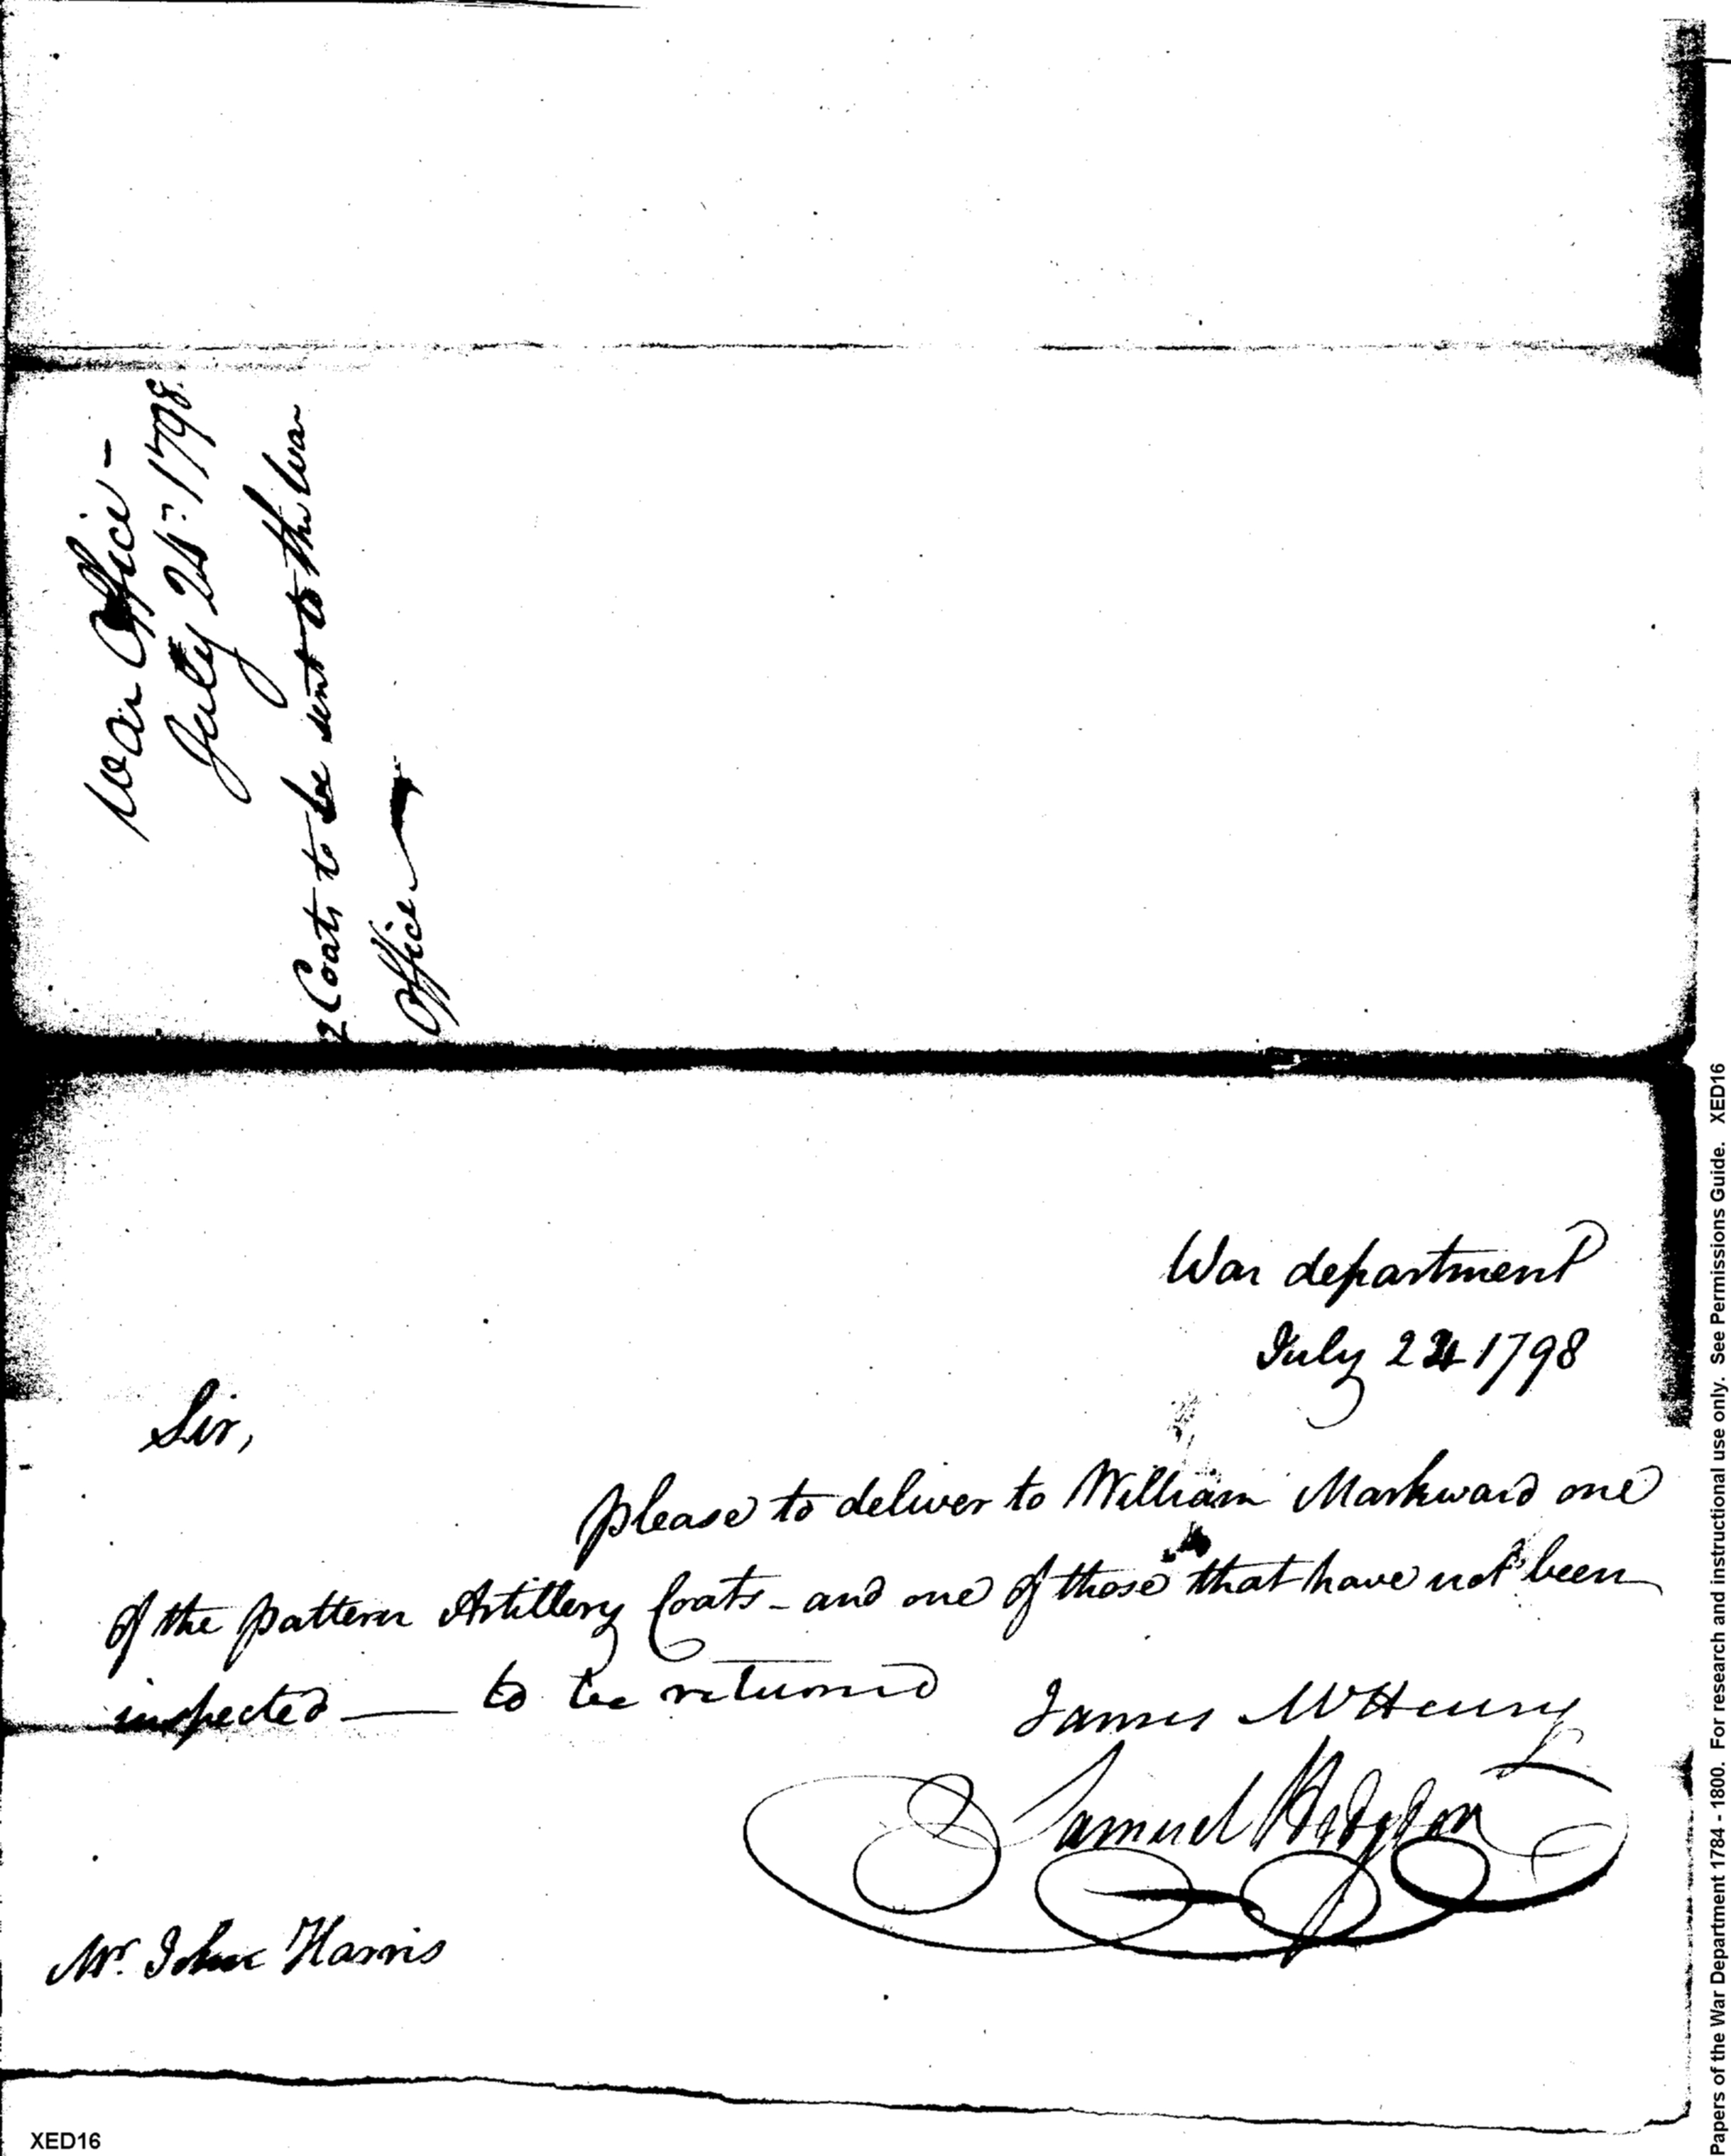 War Office -
July 24th 1798.
2 Coats to be sent to the War
Office
War department
July 24 1798
Sir,
please to deliver to William Markward one
of the pattern Artillery Coats - and one of those that have not been
inspected — to be returned
James McHenry
Samuel Hodgdon
Mr. John Harris
XED16
Papers of the War Department 1784 - 1800. For research and instructional use only. See Permissions Guide. XED16